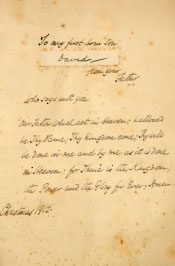 To my first-born Son
David
from your
Father
Who says with you
"Our Father which art in heaven; hallowed
be Thy Name, Thy Kingdom come; Thy will
be done in me and by me as it is done
in heaven. for Thine is the Kingdom
the Power and the Glory for Ever. Amen
Christmas 1912.